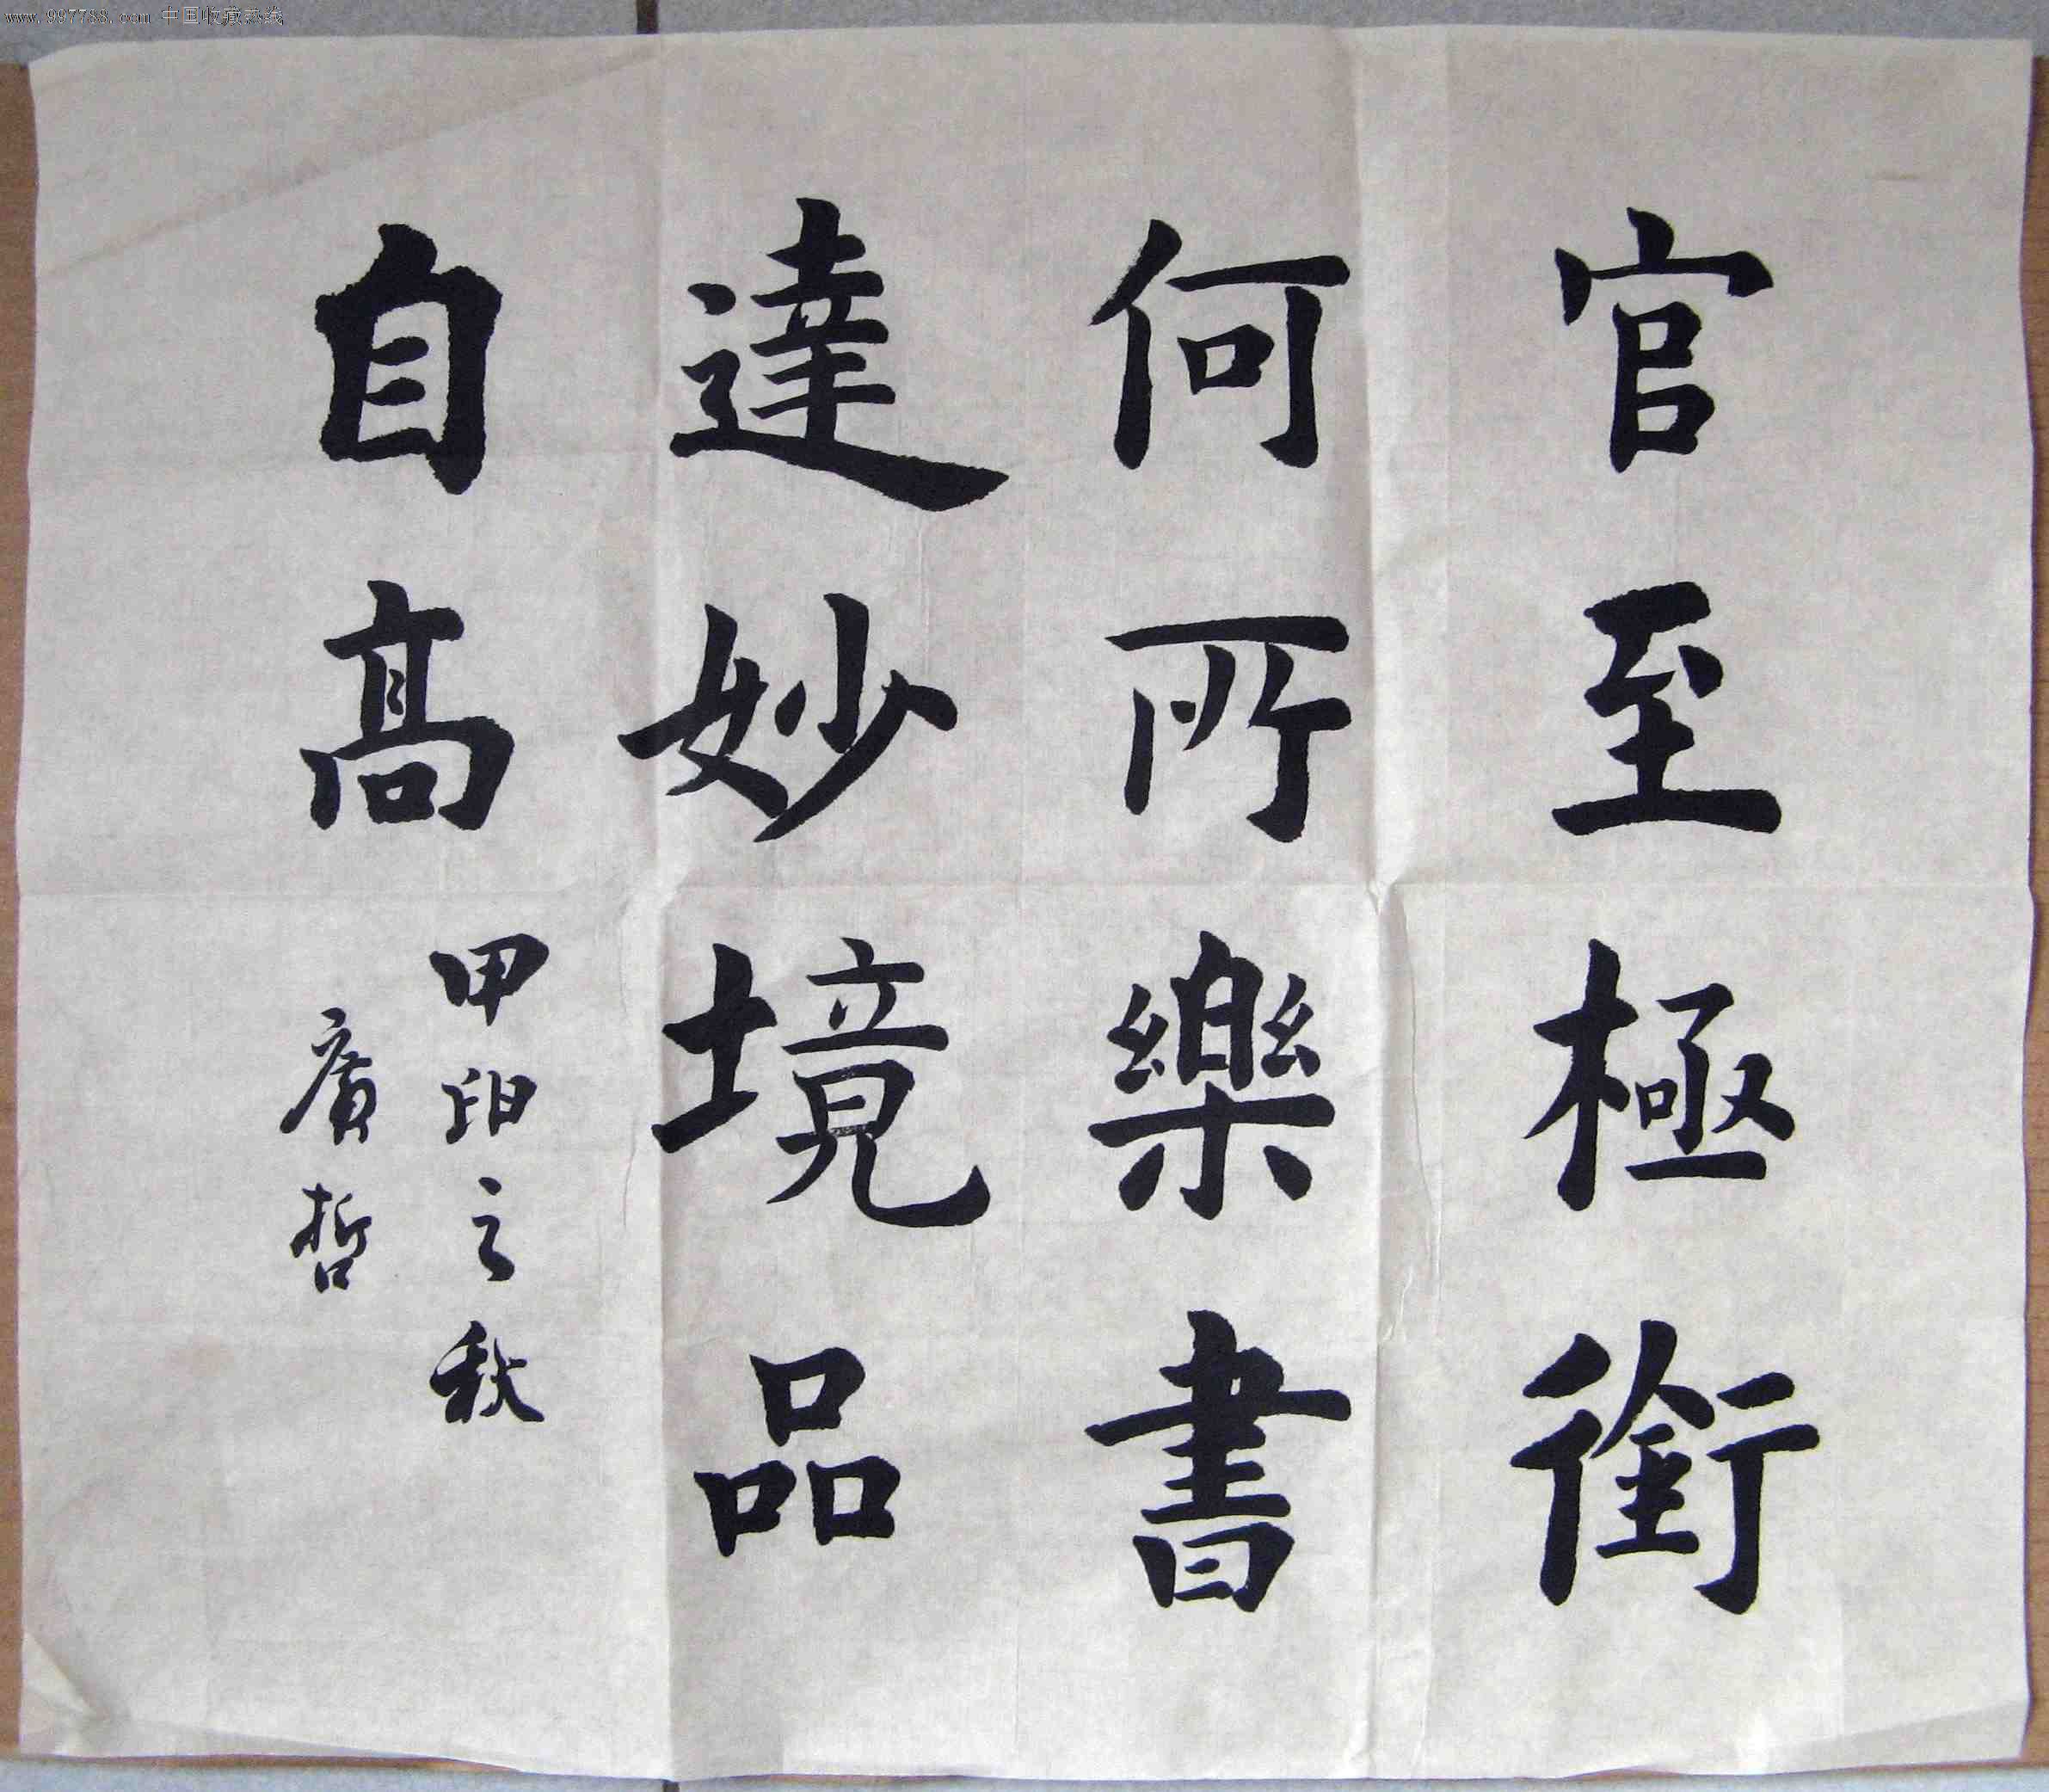 www.997788.com 中国收藏热线
官至極銜
何所樂書
達妙境品
自高
甲申之秋
廣哲